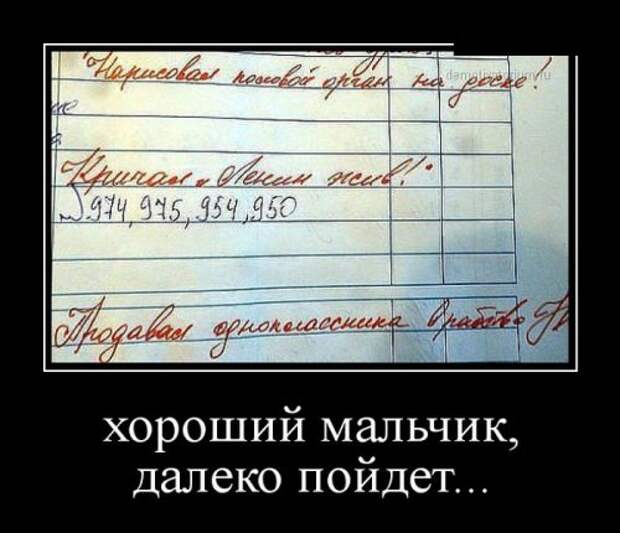 Нарисовал половой орган на доске!
demotivatorium.ru
Кричал „Ленин жив!"
974, 975, 954, 950
Продавал одноклассника в рабство
хороший мальчик,
далеко пойдет...